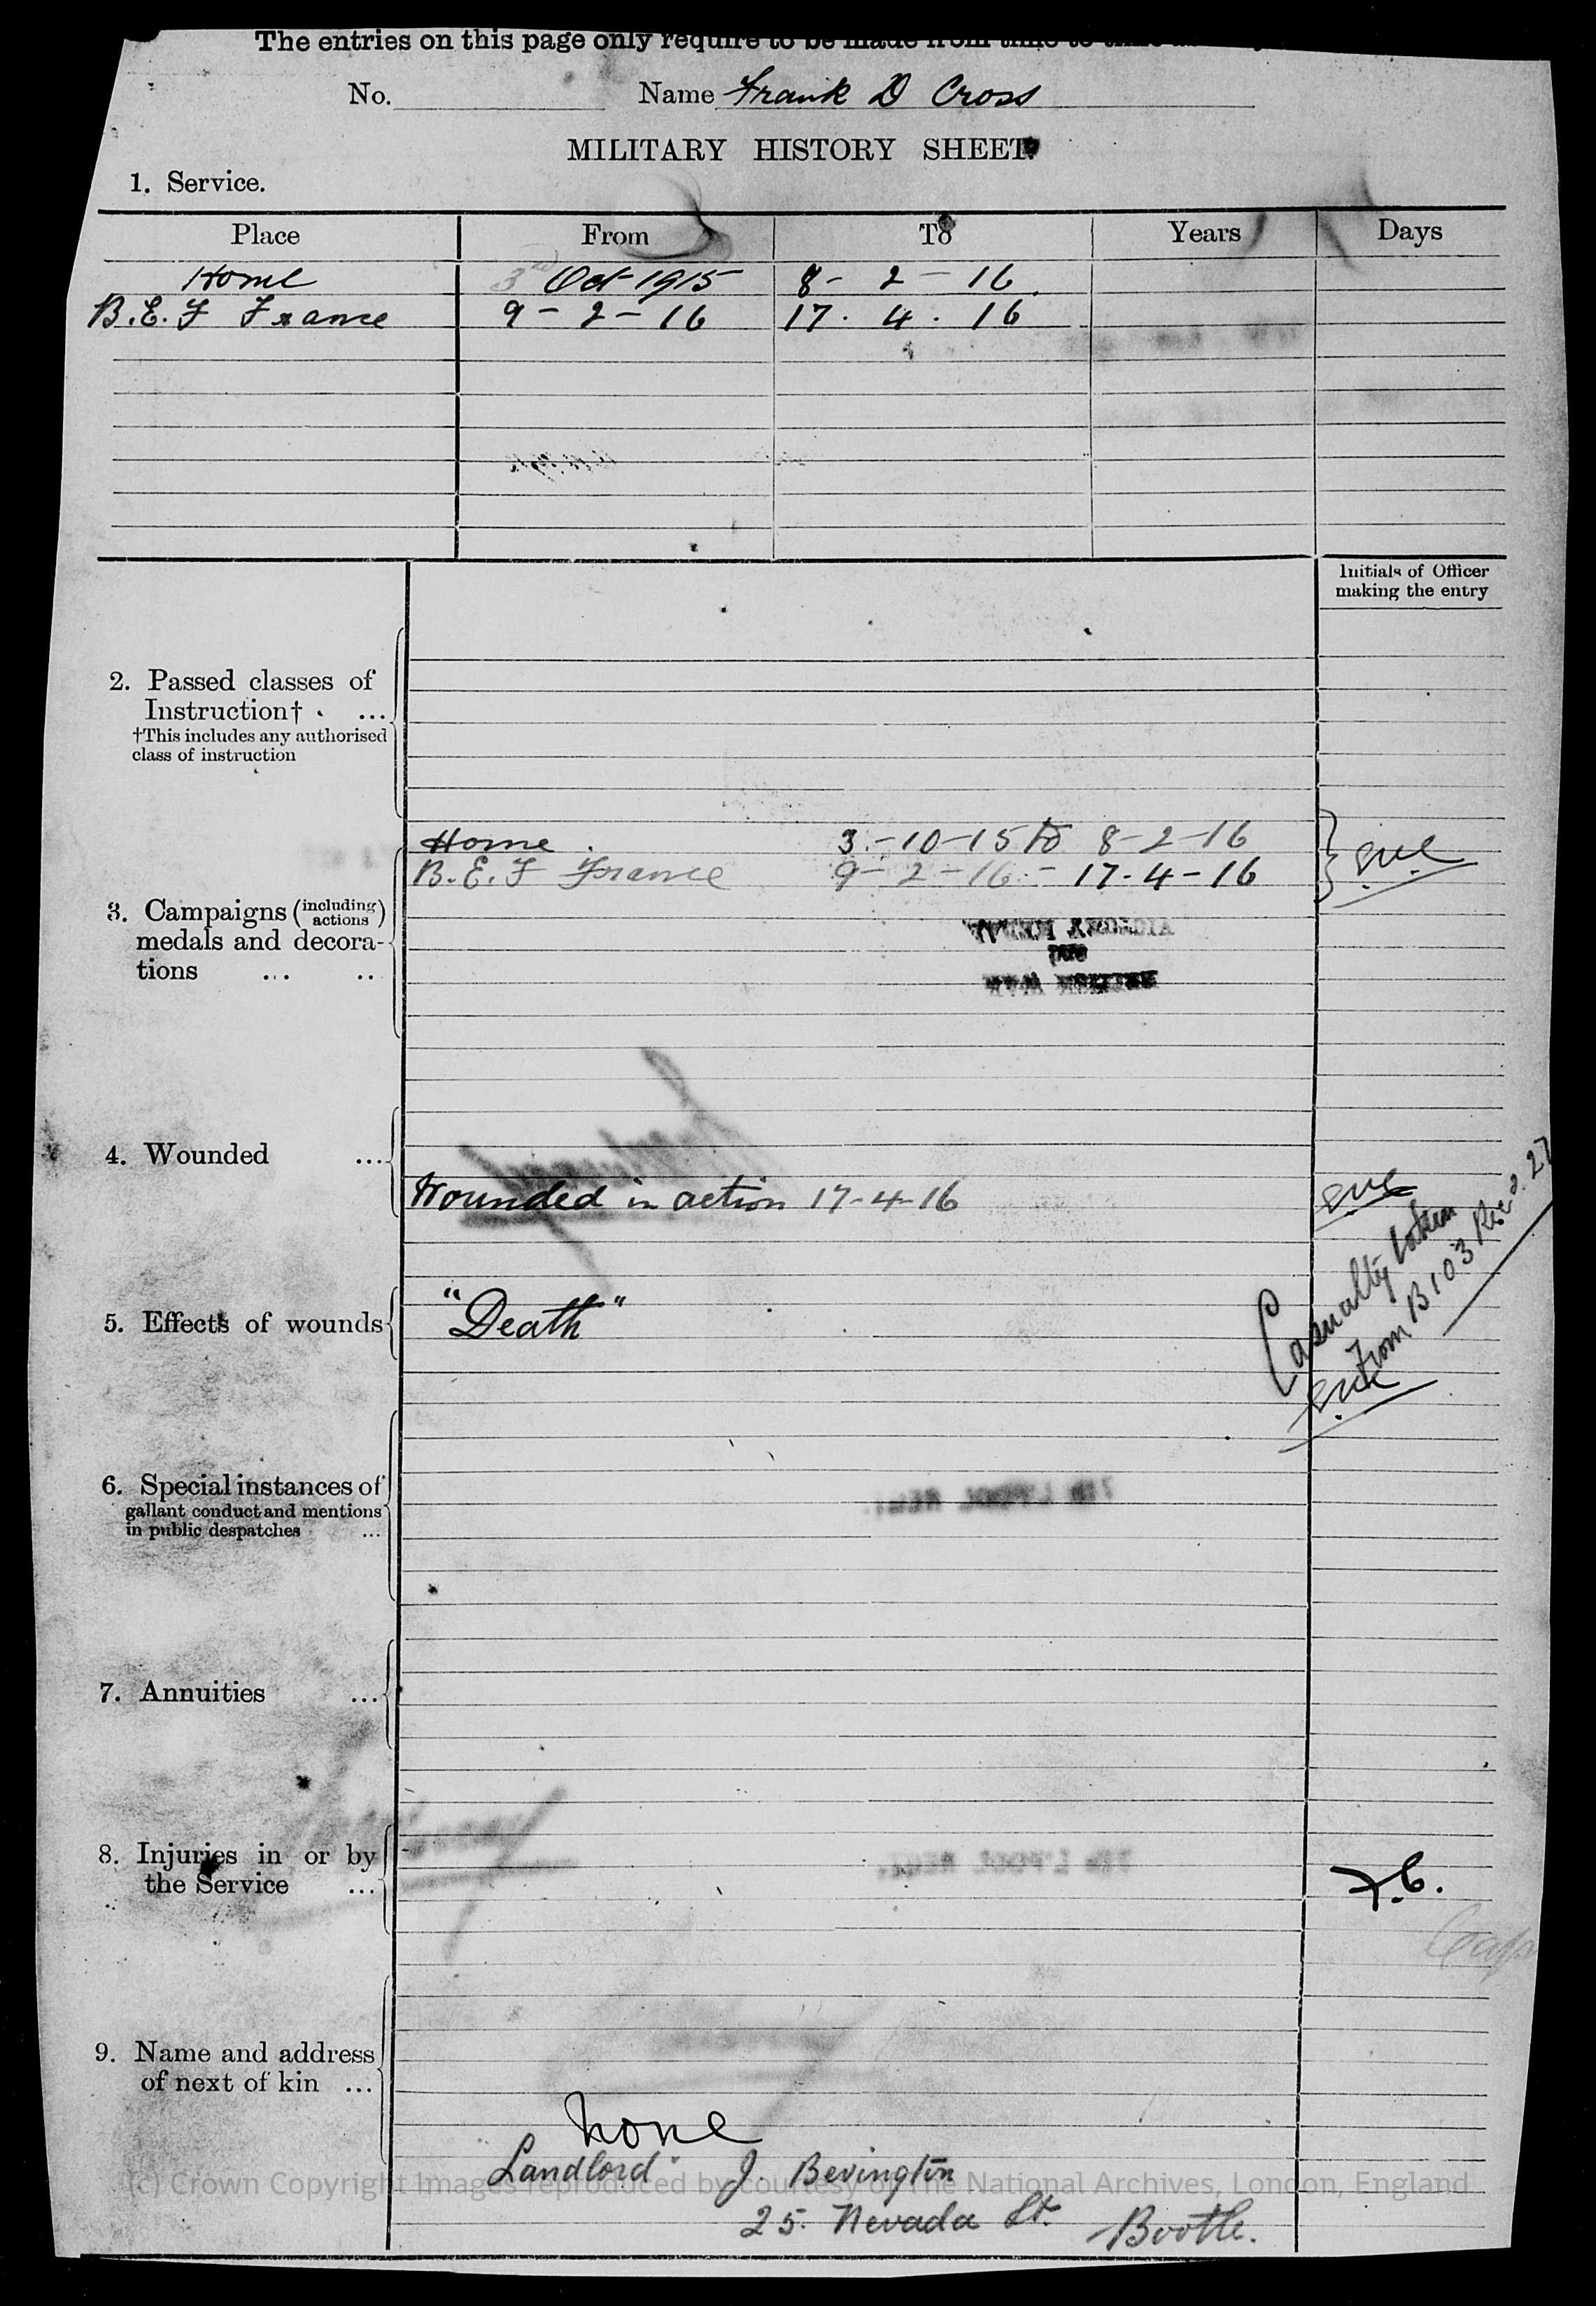 The entries on this page only require to be made from time to time
No. Name Frank D Cross
MILITARY HISTORY SHEET
1. Service.
Place From To Years Days
Home 3rd Oct 1915 8 - 2 - 16
B.E.F France 9 - 2 - 16 17 . 4 . 16
Initials of Officer
making the entry
2. Passed classes of
Instruction† ...
†This includes any authorised
class of instruction
Home . 3 - 10 - 15 to 8 - 2 - 16
B.E.F France 9 - 2 - 16 - 17 - 4 - 16
3. Campaigns (including
actions)
medals and decora-
tions ... ..
VICTORY MEDAL
AND
BRITISH WAR
4. Wounded ...
Wounded in action 17-4-16
Casualty taken
from B103 Recd. 27
5. Effects of wounds
"Death"
6. Special instances of
gallant conduct and mentions
in public despatches ...
7th L'POOL REGT.
7. Annuities ...
8. Injuries in or by
the Service ...
7th L'POOL REGT.
9. Name and address
of next of kin ...
none
Landlord J. Bevington
25. Nevada St. Bootle.
(c) Crown Copyright Images reproduced by courtesy of The National Archives, London, England